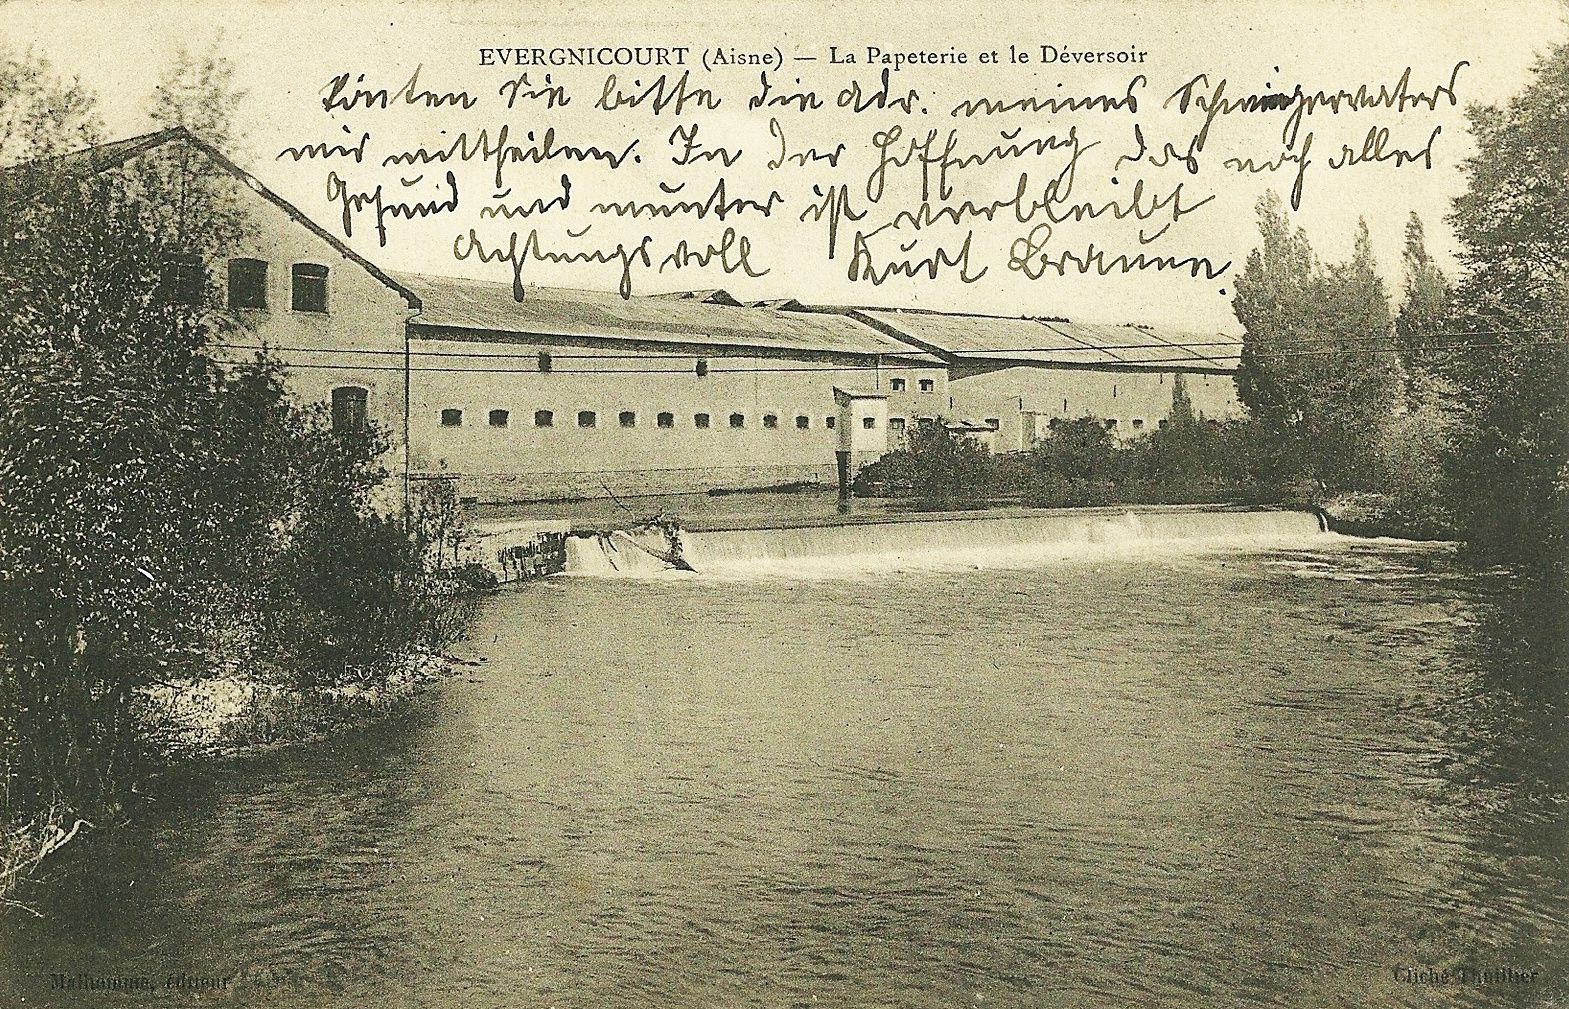 EVERGNICOURT (Aisne) — La Papeterie et le Déversoir
könten Sie bitte die Adr. meines Schwiegervaters
mir mittheilen. In der Hoffnung das noch alles
Gesund und munter ist verbleibt
Achtungsvoll Kurt Braune.
Malhomme, éditeur
Cliché Thuillier